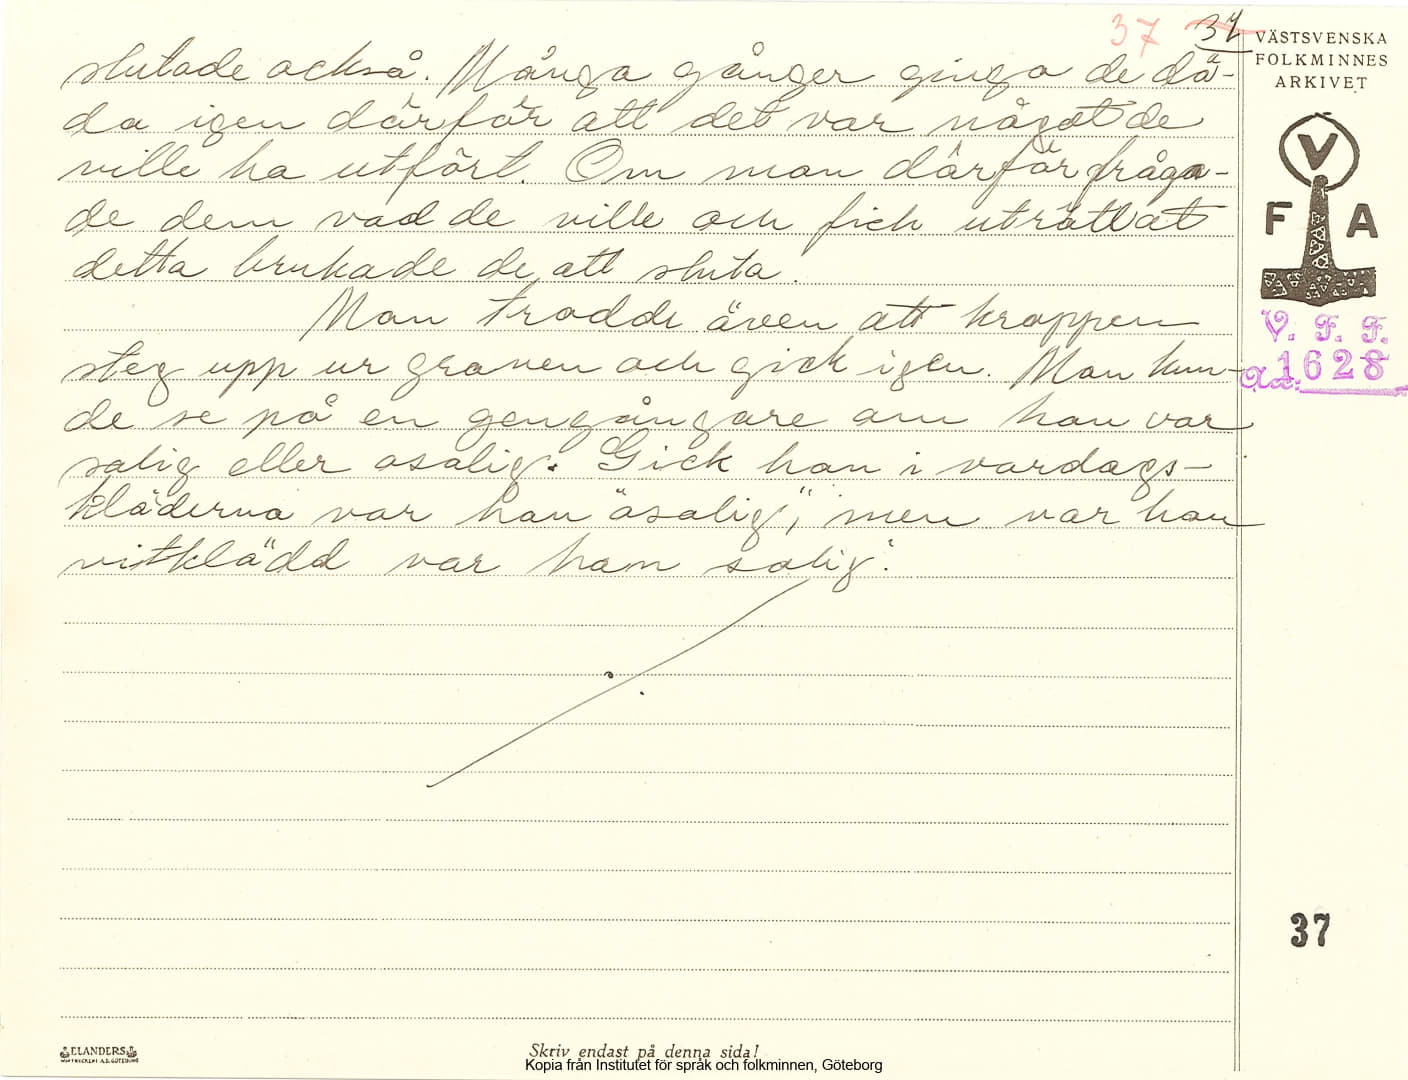 37 37
VÄSTSVENSKA
FOLKMINNES
ARKIVET
slutade också. Många gånger ginga de dö-
da igen därför att det var något de
ville ha utfört. Om man därför fråga-
de dem vad de ville och fick uträttat
detta brukade de att sluta.
Man trodde även att kroppen
steg upp ur graven och gick igen. Man kun-
de se på en gengångare om han var
salig eller osalig. Gick han i vardags-
kläderna var han "osalig", men var han
vitklädd var han salig.
V
F A
V. F. F.
1628
37
ELANDERS
Skriv endast på denna sida!
Kopia från Institutet för språk och folkminnen, Göteborg